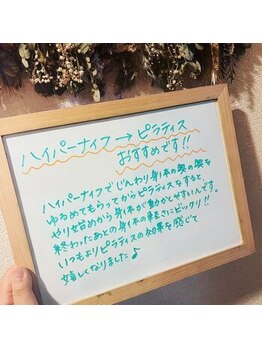 ハイパーナイフ→ピラティス
おすすめです!!
ハイパーナイフでじんわり身体の奥の奥を
ゆるめてもらってからピラティスをすると、
やり始めから身体が動かしやすいんです。
終わったあとの身体の軽さにビックリ!!
いつもよりピラティスの効果を感じて
嬉しくなりました♪